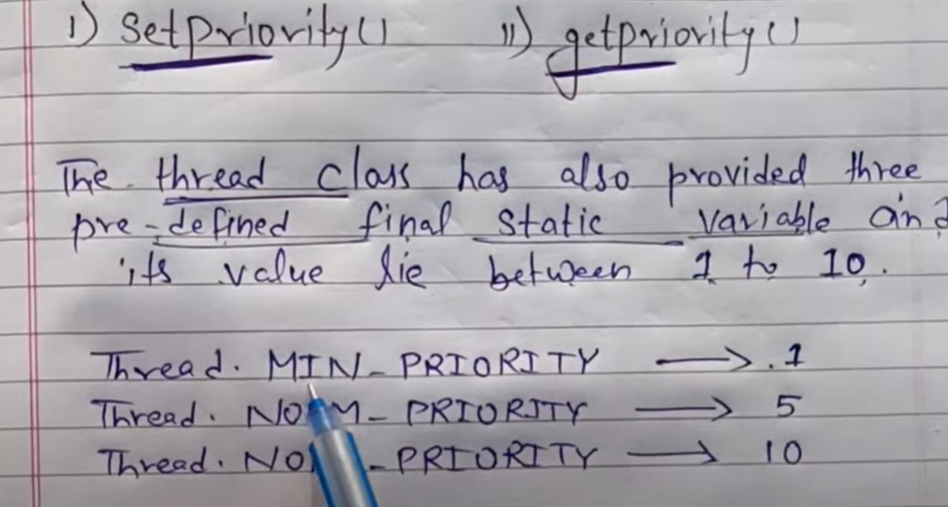 i) SetPriority() ii) getpriority()
The thread class has also provided three
pre-defined final static variable and
its value lie between 1 to 10.
Thread. MIN_PRIORITY → .1
Thread. NORM_PRIORITY → 5
Thread. _PRIORITY → 10